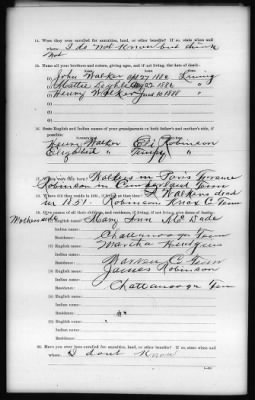 14. Were they ever enrolled for annuities, land, or other benefits? If so, state when and
where. I do not know but think
not
15. Name all your brothers and sisters, giving ages, and if not living, the date of death:
(1) John Walker Living
(2) Mattie
(3) Henry Walker "
(4)
(5)
(6)
16. State English and Indian names of your grandparents on both father's and mother's side, if
possible:
Henry Walker Eli Robinson
Elizabeth "
17. Where were they born? Walkers in
Robinson in Cumberland Tenn
18. Where did they reside in 1851, Walkers dead
in 1851. Robinson Knox C Tenn
19. Give names of all their children, and residence, if living; if not living, give dates of deaths:
(1) English name: Mary Ann McDade
Indian name:
Residence: Chattanooga Tenn
(2) English name: Martha
Indian name:
Residence: C Tenn
(3) English name: James Robinson
Indian name:
Residence: Chattanooga Ten
(4) English name:
Indian name:
Residence: "
(5) English name:
Indian name:
Residence:
20. Have you ever been enrolled for annuities, land, or other benefits? If so, state when and
where. I dont know